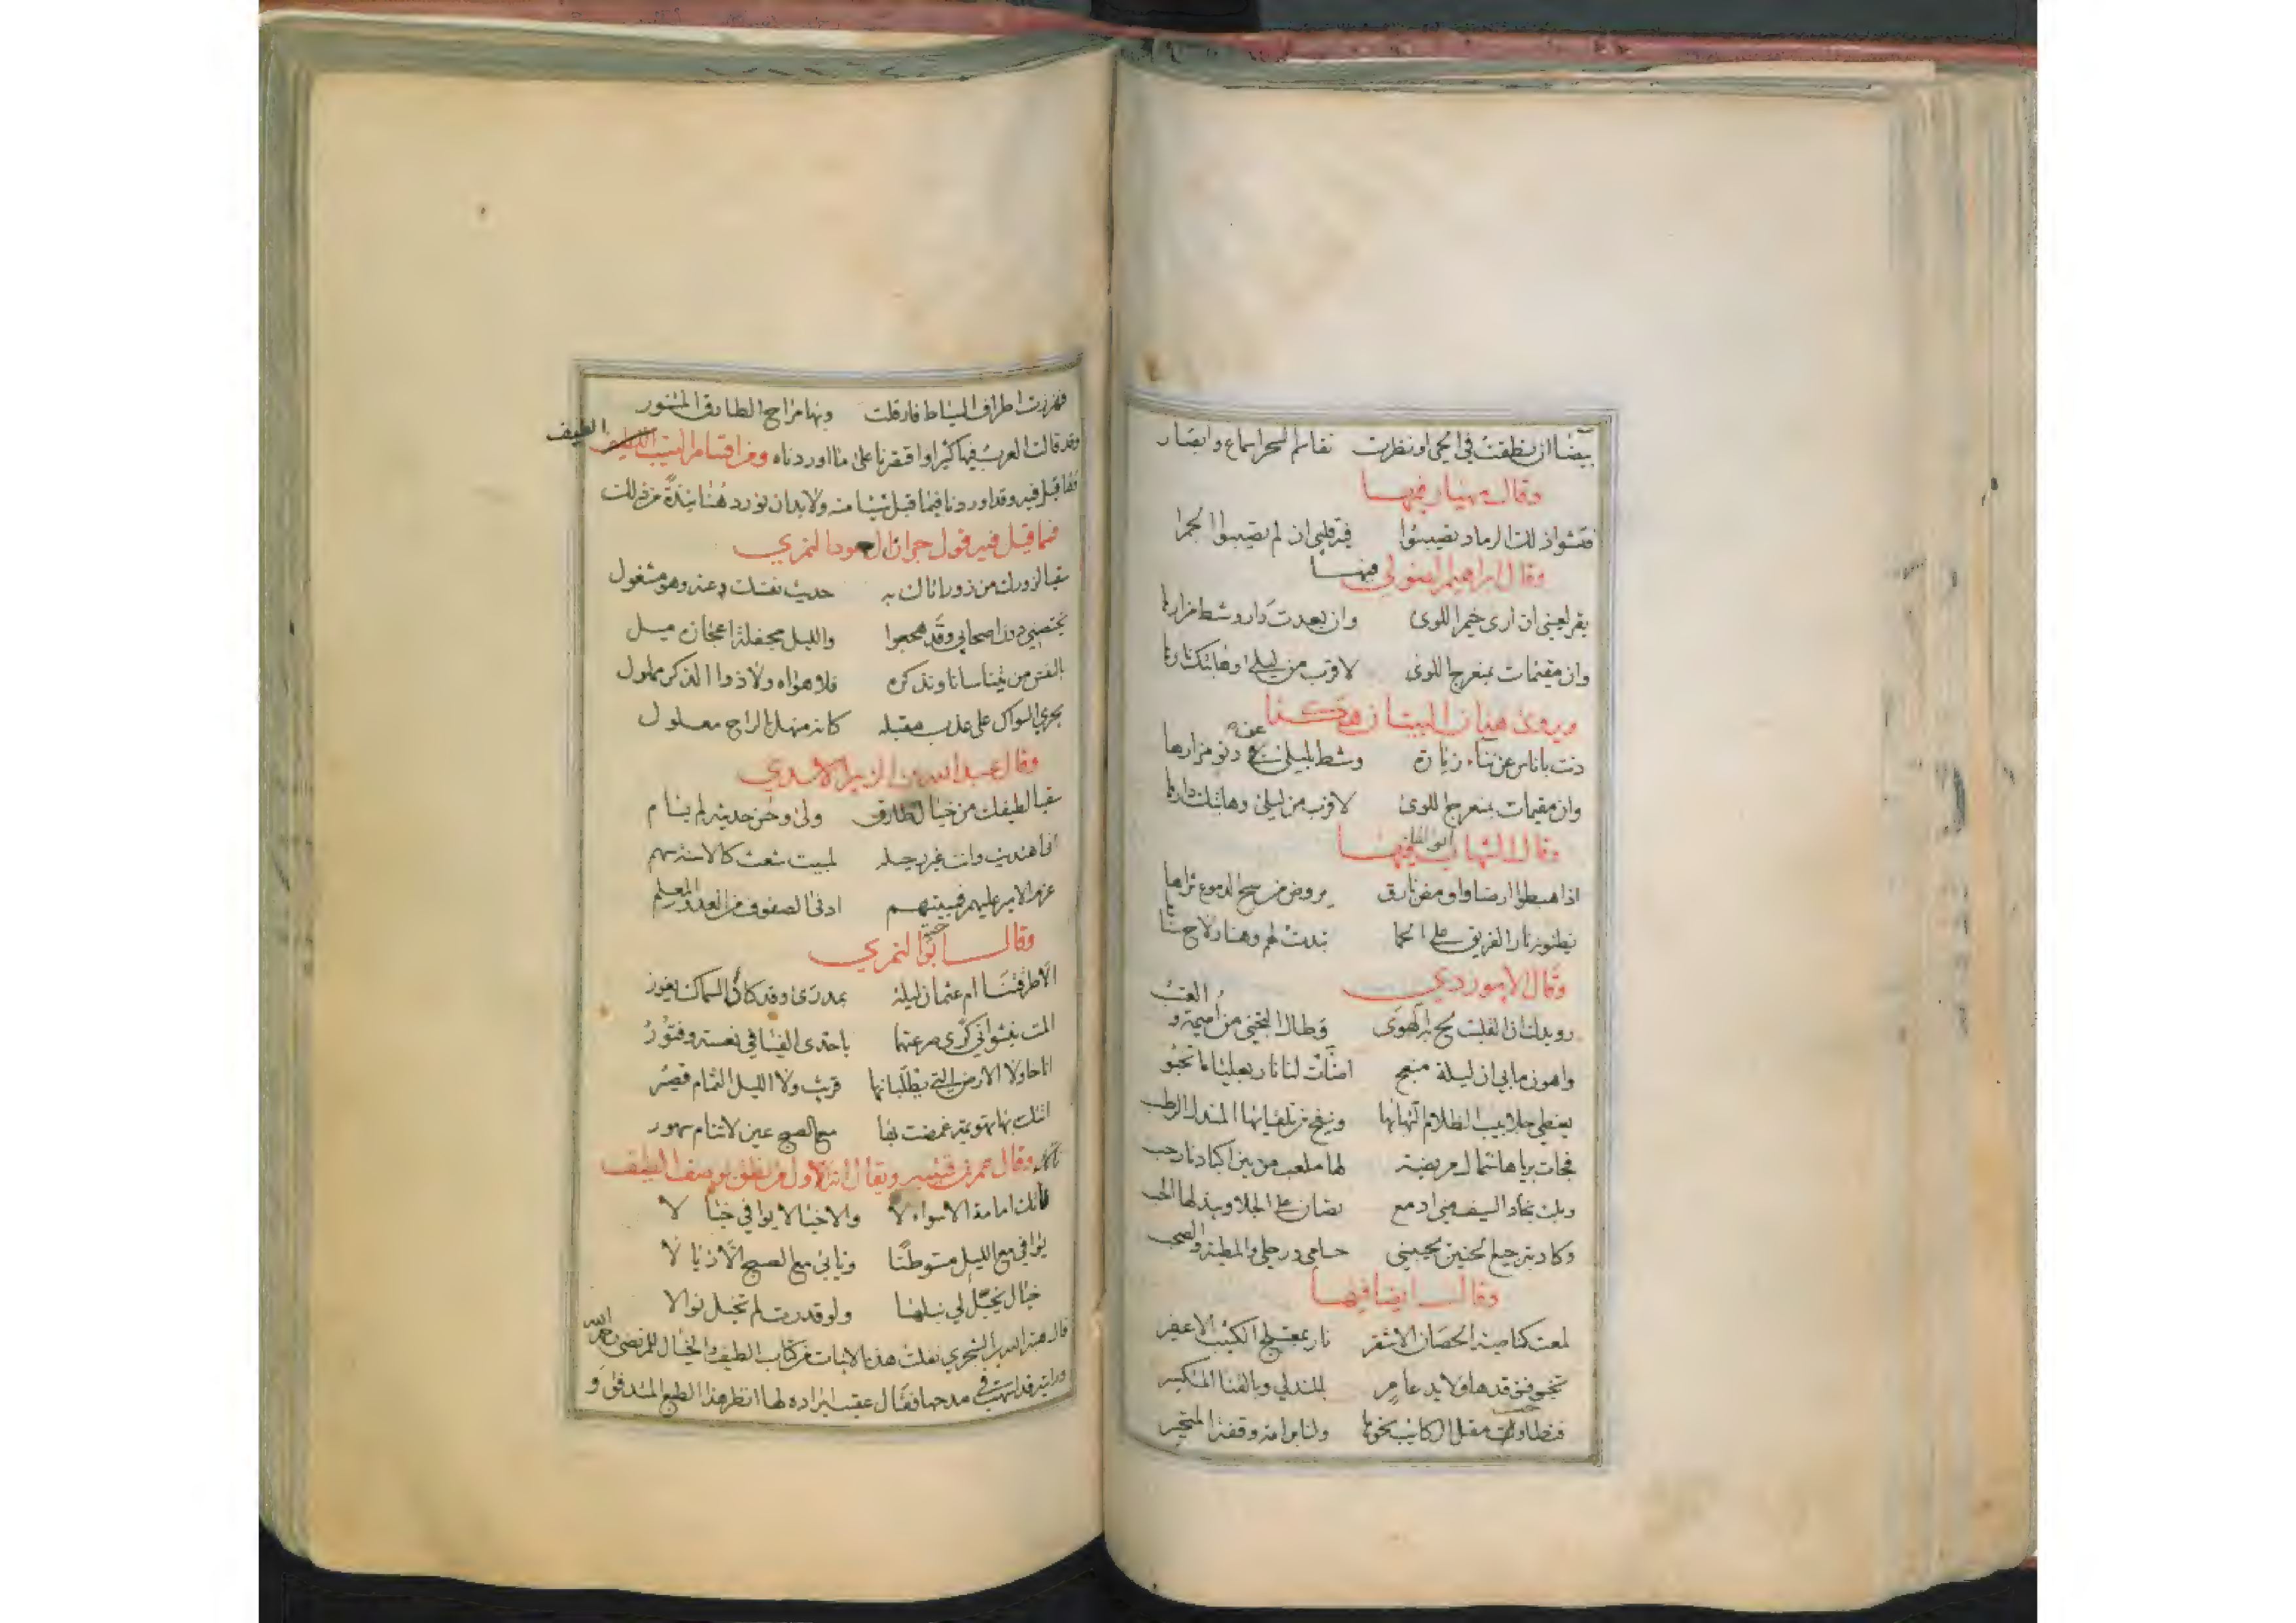 بيضا ان نطقت في الحي او نظرت تقاسم السحر اسماع وابصار
وقال مهيار فيها
فتشوا ذلك الرماد تصيبوا فيه قلبي ان لم تصيبوا الجمرا
وقال ابراهيم الصولي فيها
يقر لعيني ان ارى خيم اللوى وان بعدت دار وشط مزارها
وان مقيمات بمنعرج اللوى لاقرب من ليلى وهاتيك نارها
ويروى هذان البيتان هكذا
دنت باناس عن تناء زيارة وشط بليلى عن دنو مزارها
وان مقيمات بمنعرج اللوى لاقرب من ليلى وهاتيك دارها
وقال الشهاب فيها
اذا هبطوا ارضا واومض بارق يروض من سح الدموع ثراها
يظنونه نار الفريق على الحما تبدت لهم وهنا ولاح سناها
وقال الابيوردي
رويدك ان القلب لج به الهوى وطال التجني من اميمة والعتب
واهون مابي ان ليلة منعج اضات لنا نار بعليا ما تخبو
يغطي جلابيب الظلام المندل الرطب
فجات برياها شمال مريضة لها ملعب من بين اكبادنا رحب
وبلت نجاد السيف مني ادمع تصان على الجلا ويبذلها الحب
وكاد بترجيع الحنين يجيبني حسامي ورحلي والمطية والصحب
وقال ايضا فيها
لمعت كناصية الحصان الاشقر نار بمعتلج الكثيب الاعفر
تخبو فتوقدها ولايد عامر بالمندلي وبالقنا المتكسر
فتطاولت مقل الركائب نحوها ولنا برامة وقفة المتحير
فهززت اطراف السياط فارقلت وبها مراح الطارق المتنور
وقد قالت العرب فيها كثيرا واقتصرنا على ما اوردناه ومن اقسام النسيب الطيف
فما قيل فيه وقد اوردنا فيما قبل شيئا منه ولابد ان نورد هنا نبذة من ذلك
فما قيل فيه قول جران العود النمري
سقيا لزورك من زور اتاك به حديث نفسك عنه وهو مشغول
يختصني دون اصحابي وقد هجعوا والليل مجفلة اعجازه ميل
فلا هواه ولا ذوا الذكر مملول
يجري السواك على عذب مقبله كانه منهل بالراح معلول
وقال عبد الله بن الزبير الاسدي
سقيا لطيفك من خيال طارق ولى ونحن حديثه لم ينام
انا هتديت وانت غير رجيله لمبيت شعث كالاسنة سهم
عزم الامير عليهم فمبيتهم ادنى الصفوف من العدو المعلم
وقال ابو حية النمري
الا طرقتنا ام عثمان ليلة السماك يغور
المت بفتو اني كرى صرعتها باحدى الفيافي نعسة وفتور
قريب ولا الليل التمام قصير
اتتك بها تهويمة غمضت بها مع الصبح عين لا تنام سهور
وقال عمرو بن قميئة ويقال انه الاول من نطق بوصف الطيف
ناتك امامة الا سؤالا والا خيالا يوافي خيالا
يوافي مع الليل مستوطنا ويابى مع الصبح الا زيالا
خيال يخيل لي نيلها ولو قدرت لم تخيل نوالا
قال هبة الله بن الشجري نقلت هذه الابيات من كتاب الطيف والخيال للمرتضى رحمه الله
ورايته قد اسهب في مدحها فقال عقيب ايراده لها انظر هذا الطبع المتدفق و